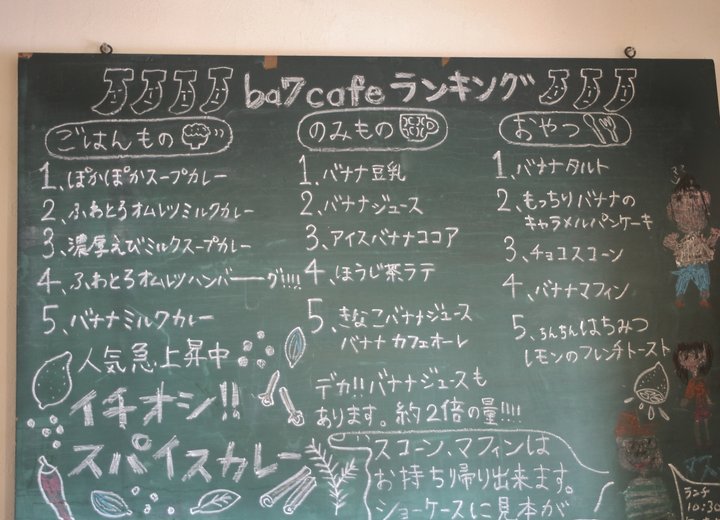 ba7cafeランキング
ごはんもの
1、ぽかぽかスープカレー
2、ふわとろオムレツミルクカレー
3、濃厚えびミルクスープカレー
4、ふわとろオムレツハンバーーグ!!!!
5、バナナミルクカレー
人気急上昇中
イチオシ!!
スパイスカレー
のみもの
1、バナナ豆乳
2、バナナジュース
3、アイスバナナココア
4、ほうじ茶ラテ
5、きなこバナナジュース
バナナカフェオーレ
デカ!!バナナジュースも
あります。約2倍の量!!!!
おやつ
1、バナナタルト
2、もっちりバナナの
キャラメルパンケーキ
3、チョコスコーン
4、バナナマフィン
5、ちんちんはちみつ
レモンのフレンチトースト
スコーン、マフィンは
お持ち帰り出来ます。
ショーケースに見本が
ランチ
10:30